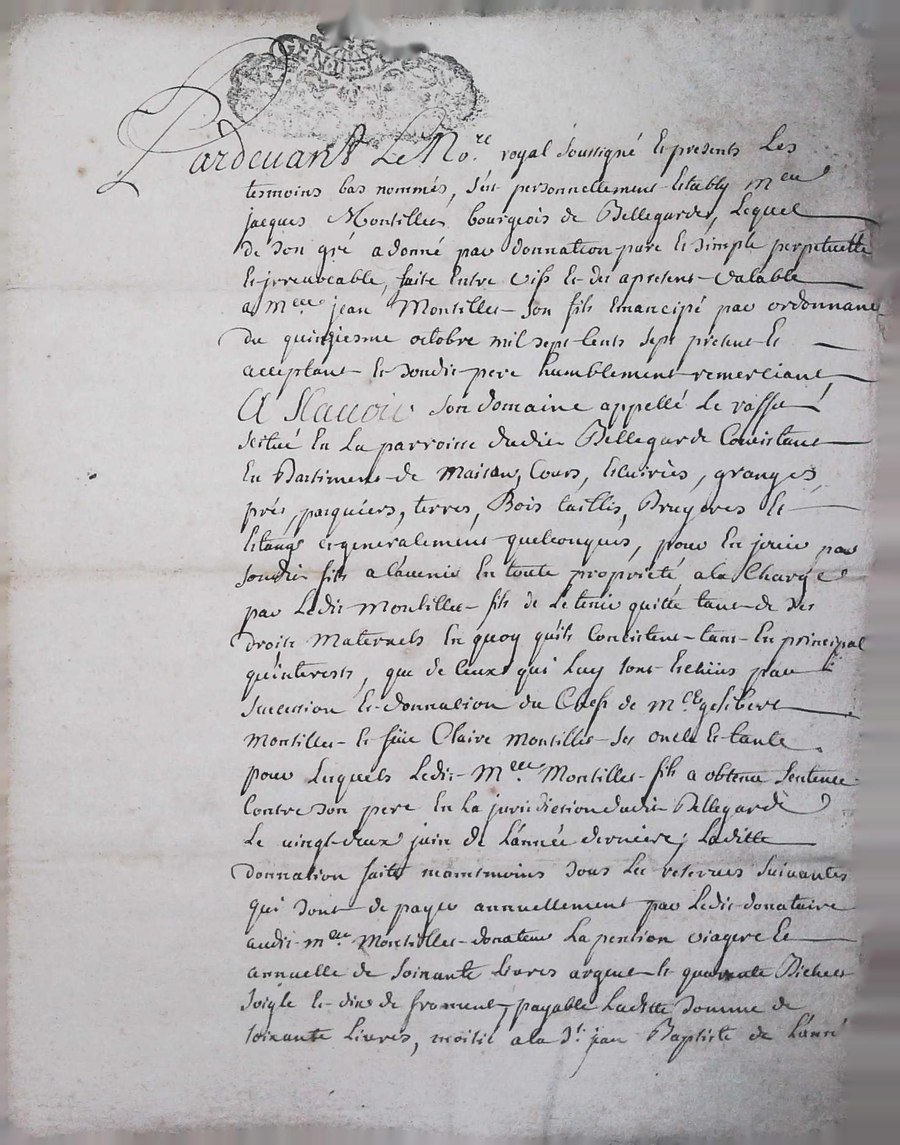 GEN
Pardevant Le No.re royal soussigné et presents Les
tesmoins bas nommés, s'est personnellement estably
jacques Montillet bourgeois de Bellegarde, Lequel
de son gré a donné par donnation pure et simple perpetuelle
et irrevocable, faite entre vifs et des apresent valable
a jean Montillet son fils emancipé par ordonnance
du quinziesme octobre mil sept cents sept present et
acceptant et sondit pere humblement remerciant
A Scavoir son domaine appellé Le
scitué en La parroisse dudit Bellegarde Consistant
en Bastiment de Maison, Cours, escuiries, granges,
prés, pasquiers, terres, Bois taillis, Bruyeres et
estangs et generalement quelconques, pour en jouir par
sondit fils a l'avenir en toute proprieté a la Charge
par Ledit Montillet fils de Le tenir quitte tant de ses
droits Maternels en quoy qu'ils Consistent tant en principal
qu'interests, que de Ceux qui Luy sont escheus par
succession et donnation du Chef de gilibert
Montillet et feüe Claire Montillet ses oncle et tante
pour Lesquels Ledit Montillet fils a obtenu sentence
Contre son pere en La jurisdiction dudit Bellegarde
Le vingt deux juin de L'année derniere; Laditte
donnation faite neantmoins sous Les reserves suivantes
qui sont de payer annuellement par Ledit donataire
audit Montillet donateur La pention viagere et
annuelle de soixante Livres argent et quarante Bichets
soigle et dix de froment, payable Laditte somme de
soixante Livres, moitié a la St jean Baptiste de L'anné